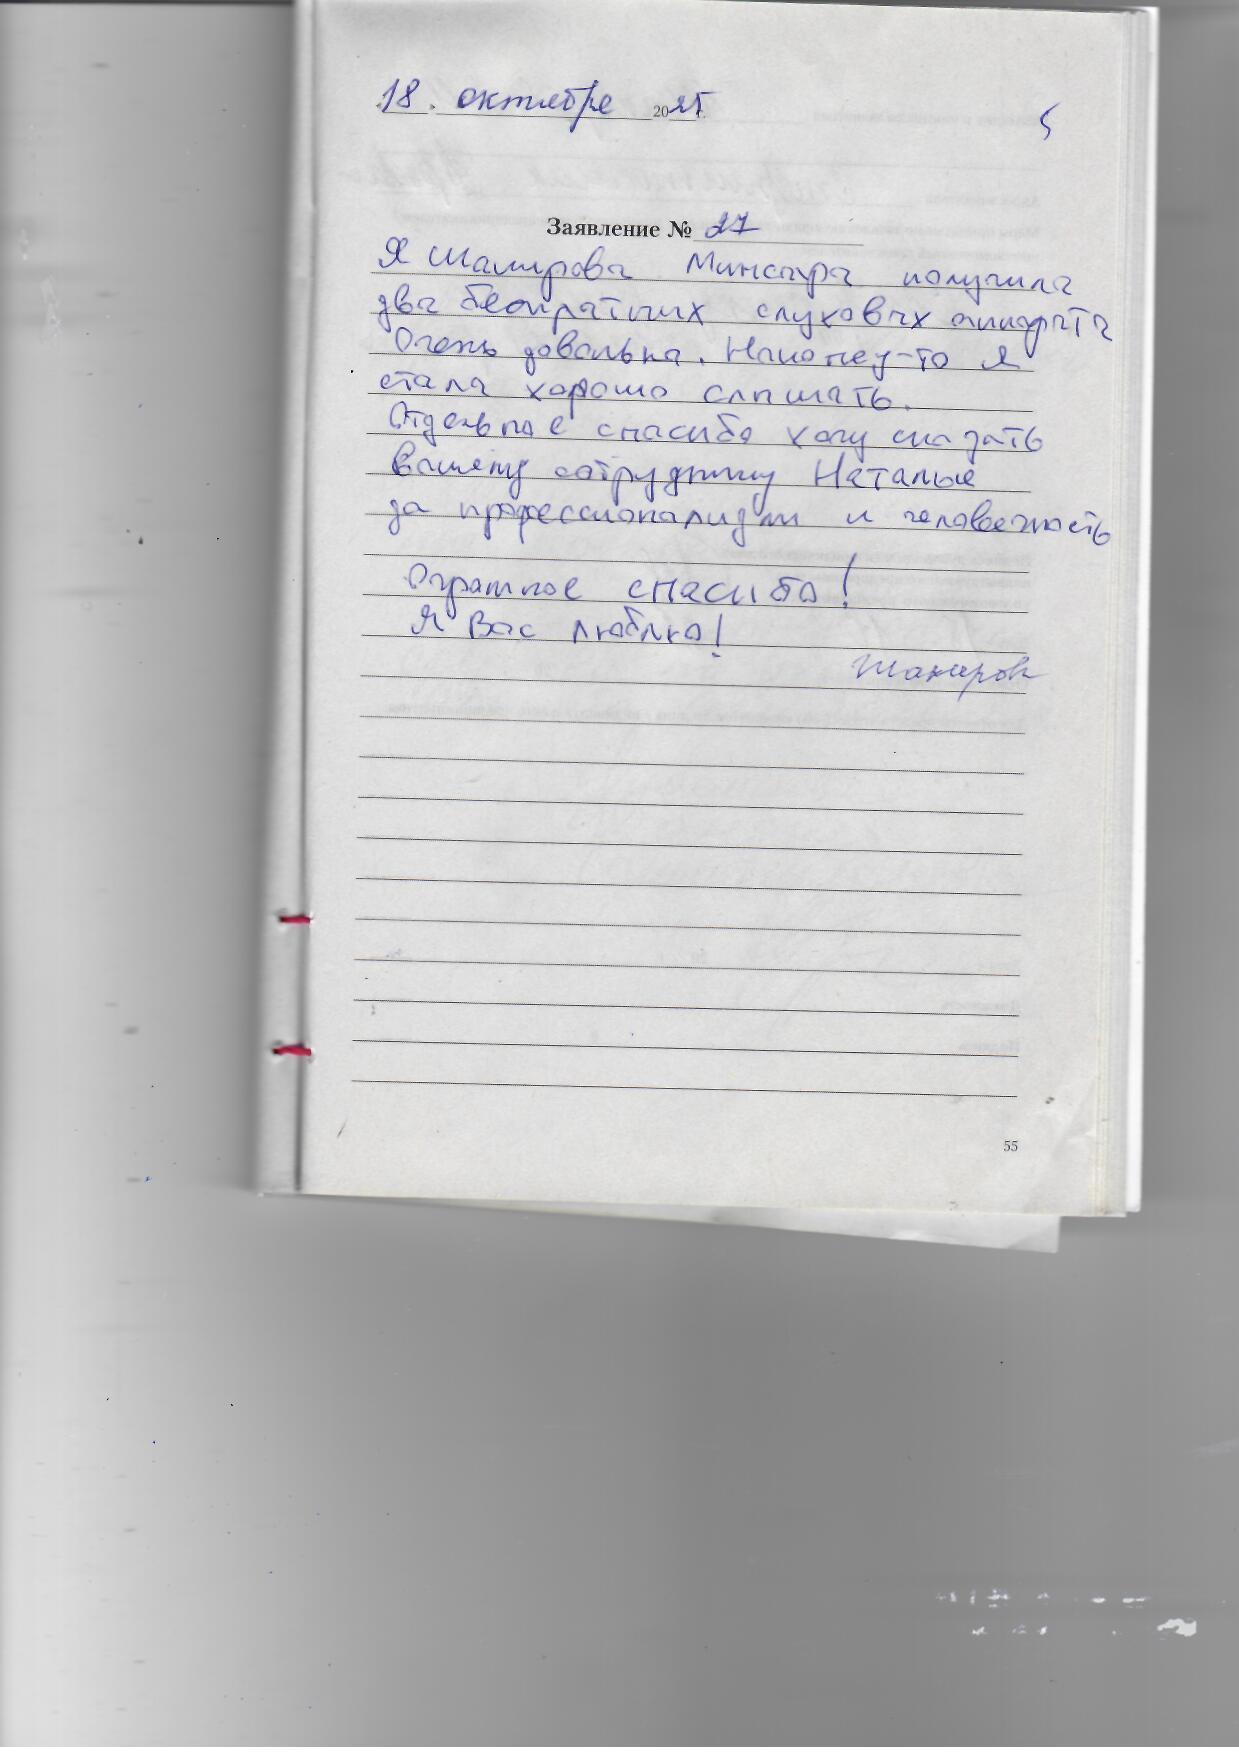 18. октября 2025 г.
5
Заявление № 27
Я Шакирова Минсара получила
два бесплатных слуховых аппарата
Очень довольна. Наконец-то я
стала хорошо слышать.
Отдельное спасибо хочу сказать
вашему сотруднику Наталье
за профессионализм и человечность
Огромное спасибо!
Я Вас люблю!
Шакиров
55